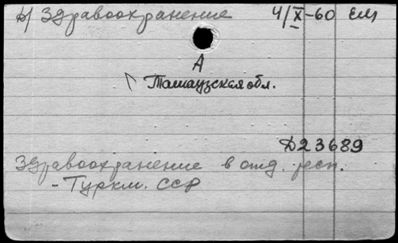 д) Здравоохранение 4/X-60 ем
А
Ташаузская обл.
Д23689
Здравоохранение в отд. респ.
- Туркм. ССР